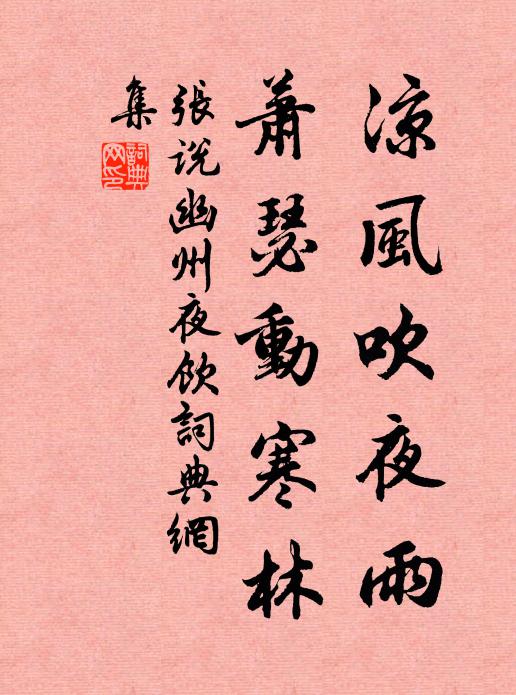 凉風吹夜雨
蕭瑟動寒林
張説幽州夜飲詞典網
集
詞典
网印